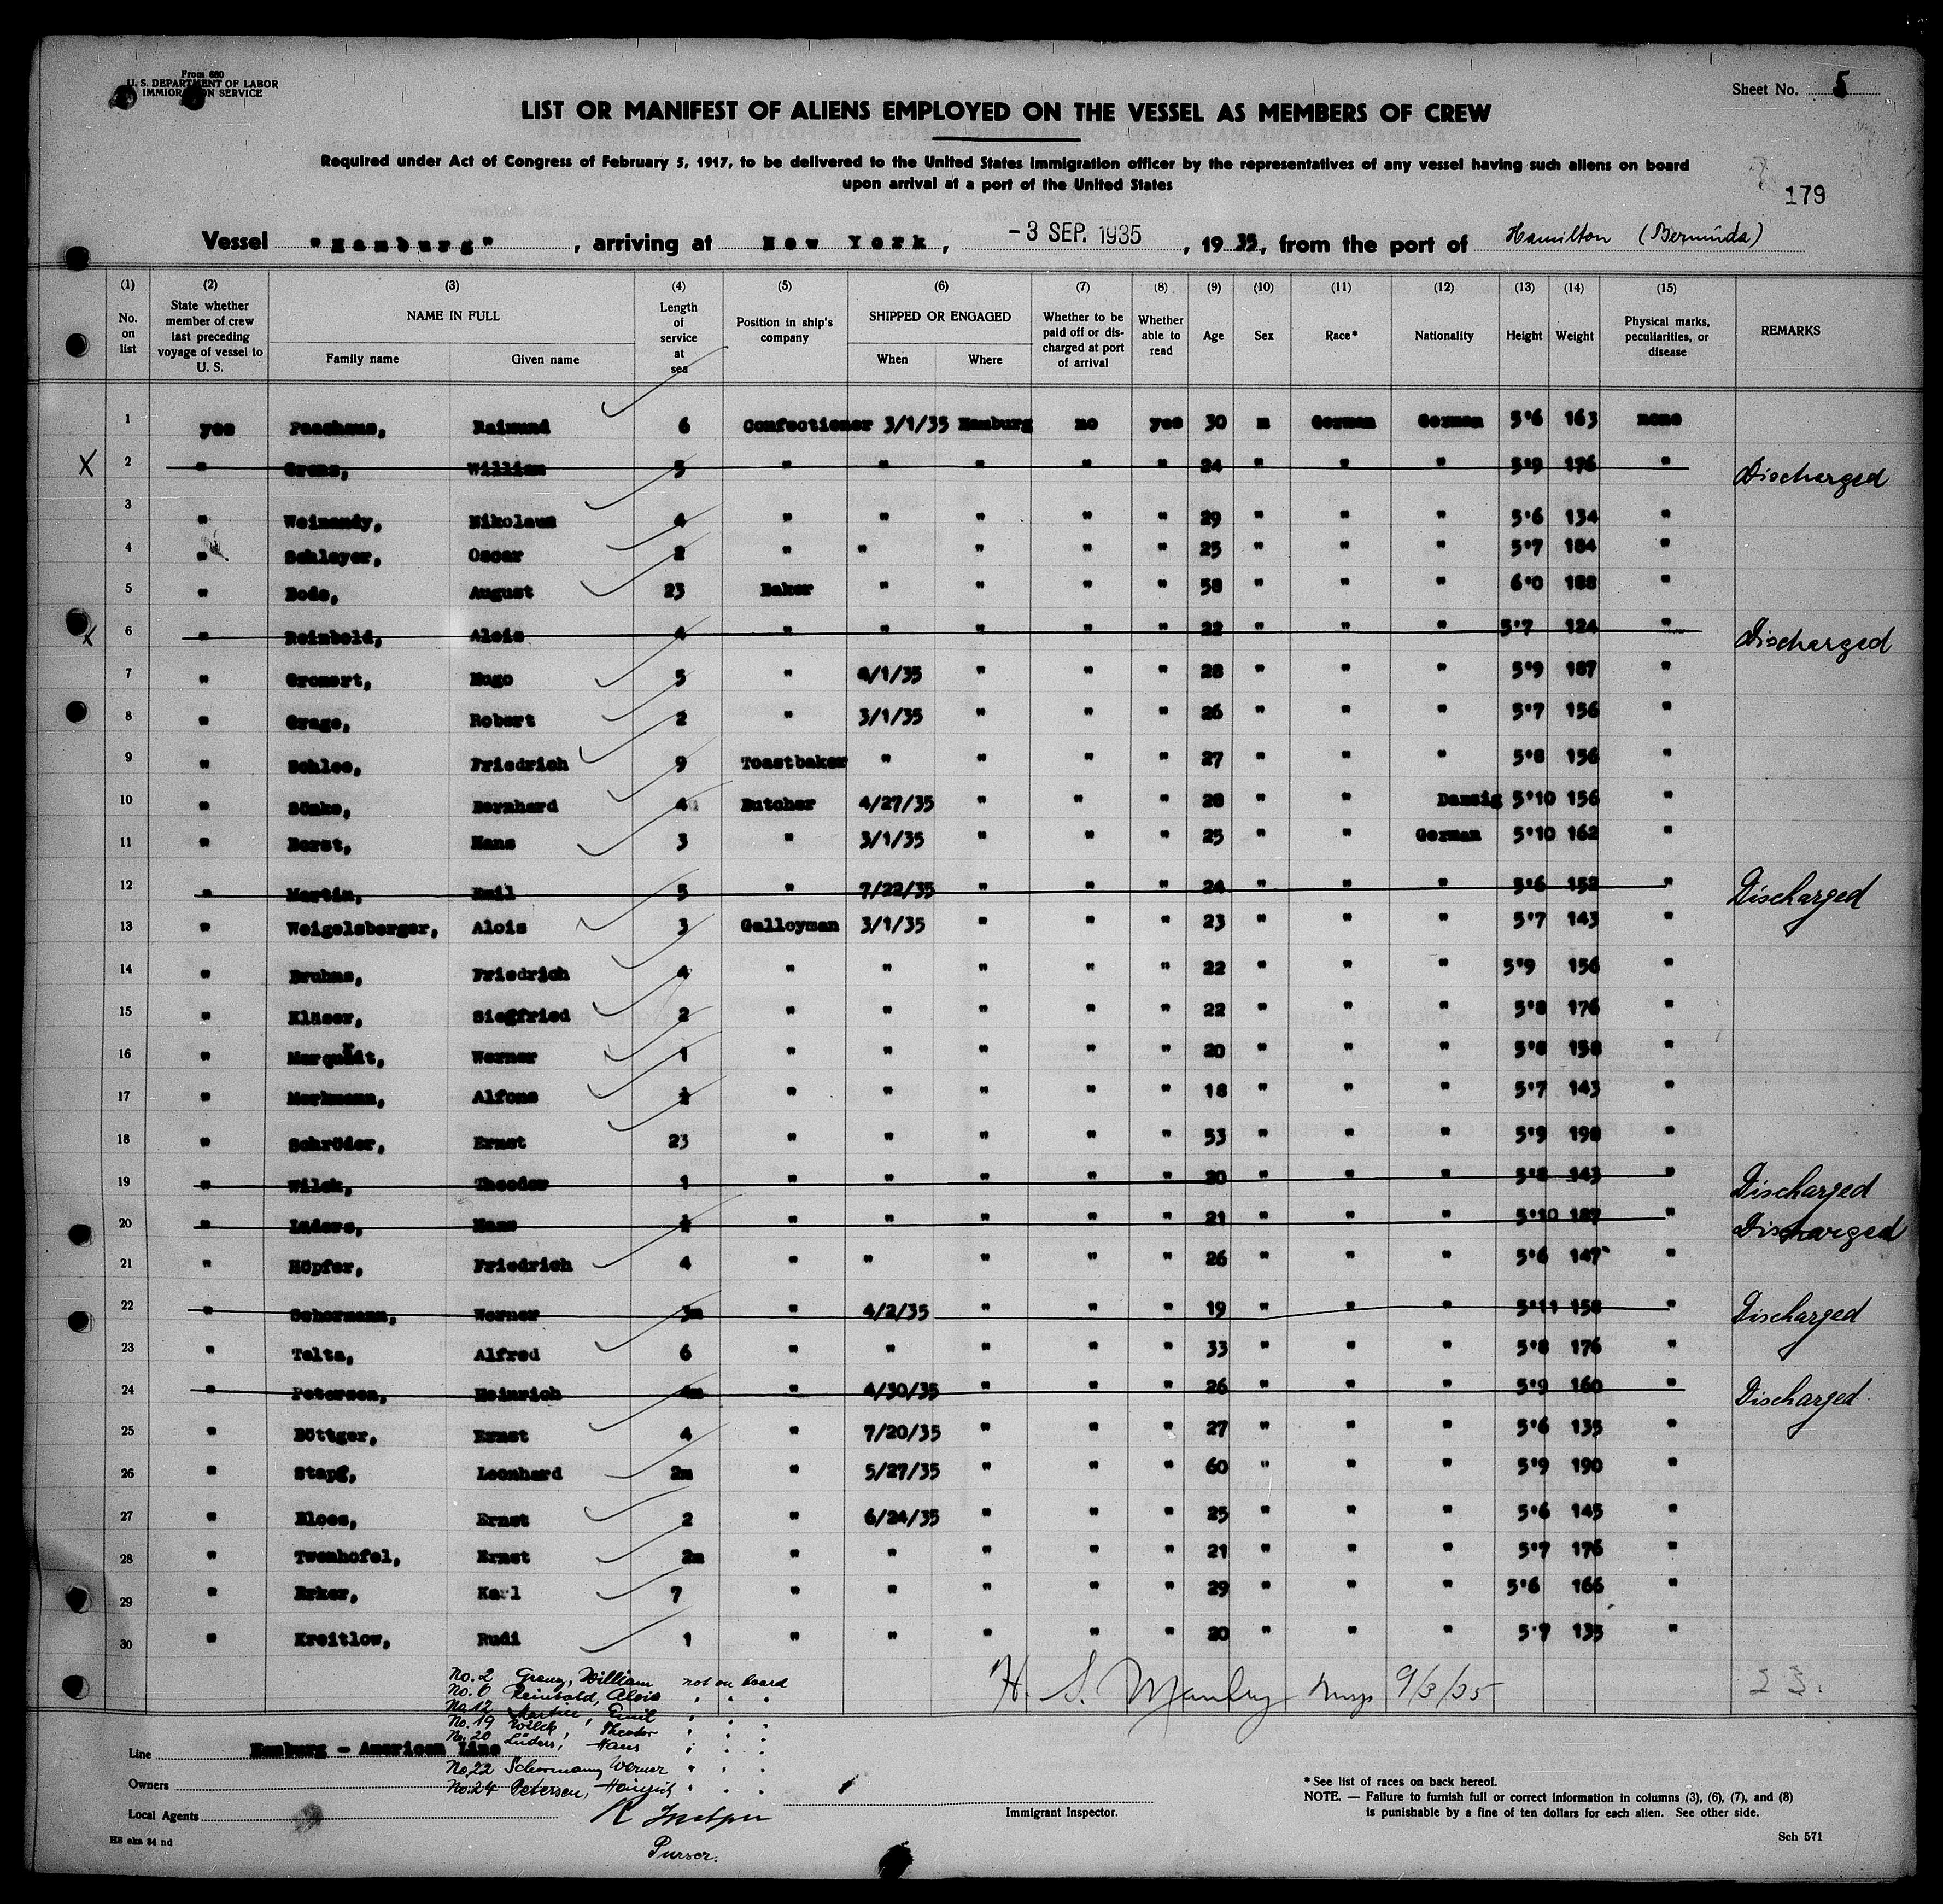 From 680
U. S. DEPARTMENT OF LABOR
IMMIGRATION SERVICE
Sheet No. 5
LIST OR MANIFEST OF ALIENS EMPLOYED ON THE VESSEL AS MEMBERS OF CREW
Required under Act of Congress of February 5, 1917, to be delivered to the United States immigration officer by the representatives of any vessel having such aliens on board
upon arrival at a port of the United States
179
Vessel "Hamburg", arriving at New York, -3 SEP. 1935, 19 35, from the port of Hamilton (Bermuda)
(1) (2) (3) (4) (5) (6) (7) (8) (9) (10) (11) (12) (13) (14) (15)
No. on list State whether member of crew last preceding voyage of vessel to U. S. NAME IN FULL Family name Given name Length of service at sea Position in ship's company SHIPPED OR ENGAGED When Where Whether to be paid off or discharged at port of arrival Whether able to read Age Sex Race* Nationality Height Weight Physical marks, peculiarities, or disease REMARKS
1 yes Paashaus, Raimund 6 Confectioner 3/1/35 Hamburg no yes 30 m German German 5'6 163 none
2 " Grenz, William 5 " " " " " 24 " " " 5'9 176 " Discharged
3 " Weinandy, Nikolaus 4 " " " " " 29 " " " 5'6 134 "
4 " Schleyer, Oscar 2 " " " " " 25 " " " 5'7 184 "
5 " Bode, August 23 Baker " " " " 58 " " " 6'0 188 "
6 " Reinbold, Alois 4 " " " " " 22 " " " 5'7 124 " Discharged
7 " Gromert, Hugo 5 " 8/1/35 " " " 28 " " " 5'9 187 "
8 " Grage, Robert 2 " 3/1/35 " " " 26 " " " 5'7 156 "
9 " Schlee, Friedrich 9 Toastbaker " " " " 27 " " " 5'8 156 "
10 " Sönke, Bernhard 4 Butcher 4/27/35 " " " 28 " " Danzig 5'10 156 "
11 " Borst, Hans 3 " 3/1/35 " " " 25 " " German 5'10 162 "
12 " Martin, Emil 5 " 7/22/35 " " " 24 " " " 5'6 152 " Discharged
13 " Weigelsberger, Alois 3 Galleyman 3/1/35 " " " 23 " " " 5'7 143 "
14 " Bruhns, Friedrich 4 " " " " " 22 " " " 5'9 156 "
15 " Kläser, Siegfried 2 " " " " " 22 " " " 5'8 176 "
16 " Marquardt, Werner 1 " " " " " 20 " " " 5'8 158 "
17 " Merkmann, Alfons " " " " " 18 " " " 5'7 143 "
18 " Schröder, Ernst 23 " " " " " 53 " " " 5'9 198 "
19 " Wilck, Theodor 1 " " " " " 20 " " " 5'8 143 " Discharged
20 " Lüders, Hans " " " " " 21 " " " 5'10 187 " Discharged
21 " Höpfer, Friedrich 4 " " " " " 26 " " " 5'6 147 "
22 " Schormann, Werner 3m " 4/2/35 " " " 19 " " " 5'11 158 " Discharged
23 " Telta, Alfred 6 " " " " " 33 " " " 5'8 176 "
24 " Petersen, Heinrich 4m " 4/30/35 " " " 26 " " " 5'9 160 " Discharged
25 " Böttger, Ernst 4 " 7/20/35 " " " 27 " " " 5'6 135 "
26 " Stapf, Leonhard 2m " 5/27/35 " " " 60 " " " 5'9 190 "
27 " Kloes, Ernst 2 " 6/24/35 " " " 25 " " " 5'6 145 "
28 " Twenhofel, Ernst 2m " " " " " 21 " " " 5'7 176 "
29 " Erker, Karl 7 " " " " " 29 " " " 5'6 166 "
30 " Kreitlow, Rudi 1 " " " " " 20 " " " 5'7 135 "
No. 2 Grenz, William not on board
No. 6 Reinbold, Alois " " "
No. 12 Martin, Emil " " "
No. 19 Wilck, Theodor " " "
No. 20 Lüders, Hans " " "
No. 22 Schormann, Werner " " "
No. 24 Petersen, Heinrich " " "
H. S. Manley Insp 9/3/35
23.
Line Hamburg - American Line
Owners
Local Agents
Purser.
Immigrant Inspector.
* See list of races on back hereof.
NOTE. — Failure to furnish full or correct information in columns (3), (6), (7), and (8)
is punishable by a fine of ten dollars for each alien. See other side.
HB eka 34 nd
Sch 571